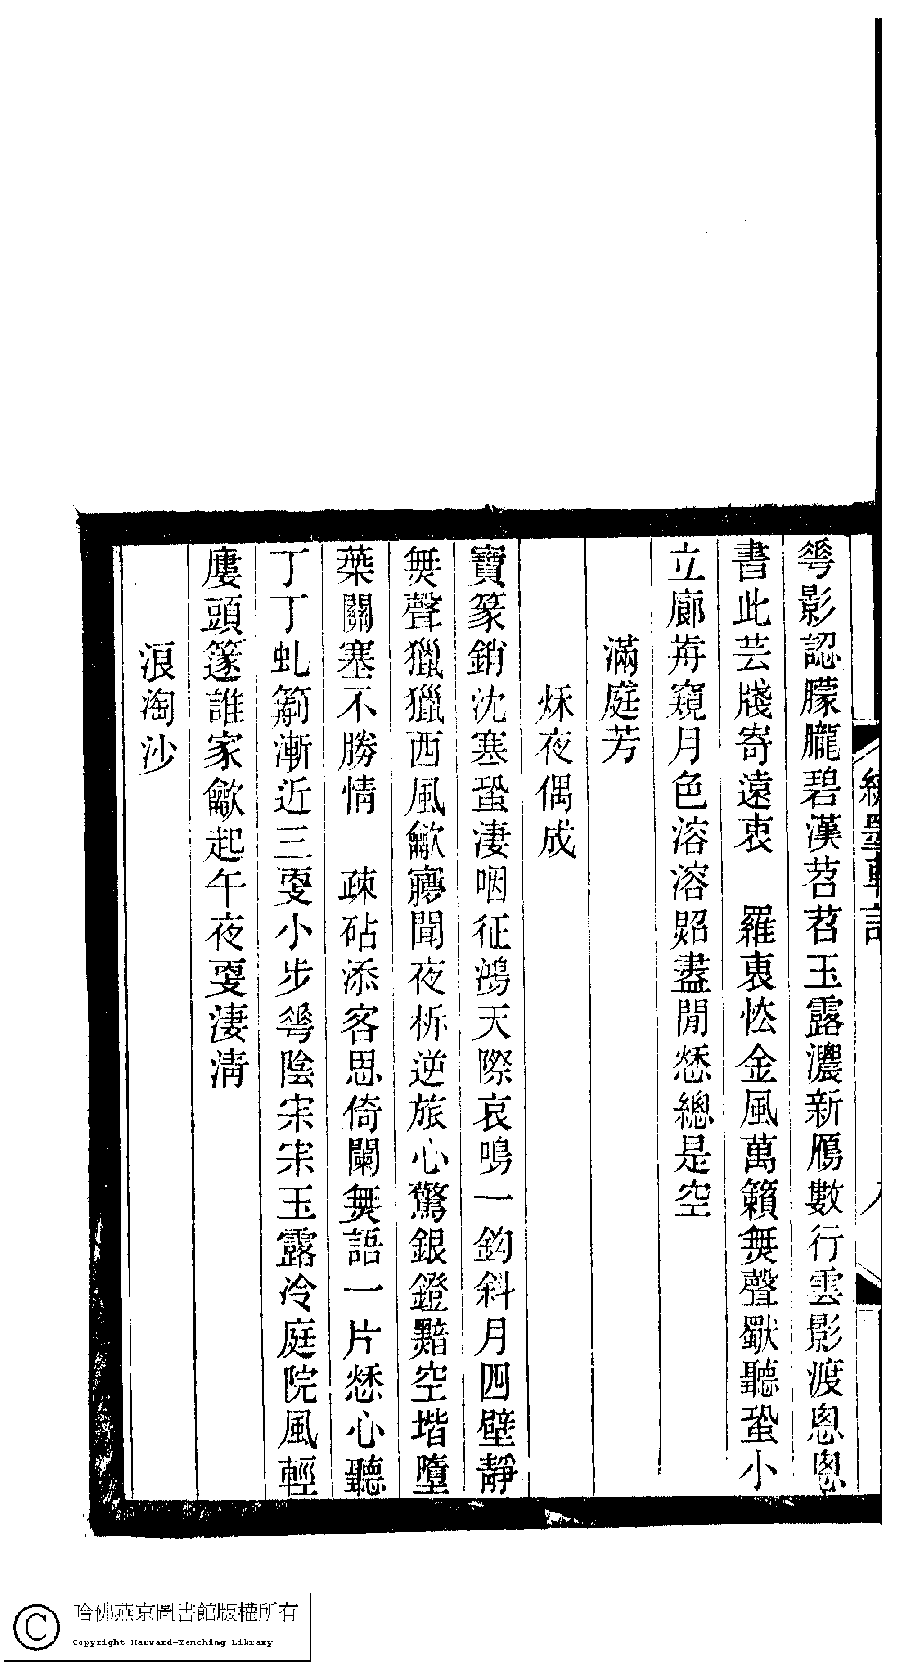 蕚影認朦朧碧漢苕苕玉露濃新鴈數行雲影渡悤悤
書此芸牋寄遠衷　羅裏怯金風萬籟無聲獨聽蛩小
立廊前窺月色溶溶照盡閒愁總是空
滿庭芳
秌夜偶成
寶篆銷沈寒蛩淒咽征鴻天際哀鳴一鉤斜月四壁靜
無聲獵獵西風歗寢聞夜柝逆旅心驚銀鐙黯空堦墮
葉關塞不勝情　疎砧添客思倚闌無語一片愁心聽
丁丁虬箭漸近三更小步蕚陰宋宋玉露冷庭院風輕
廔頭篴誰家歗起午夜更淒清
浪淘沙
哈佛燕京圖書館版權所有
Copyright Harvard-Yenching Library